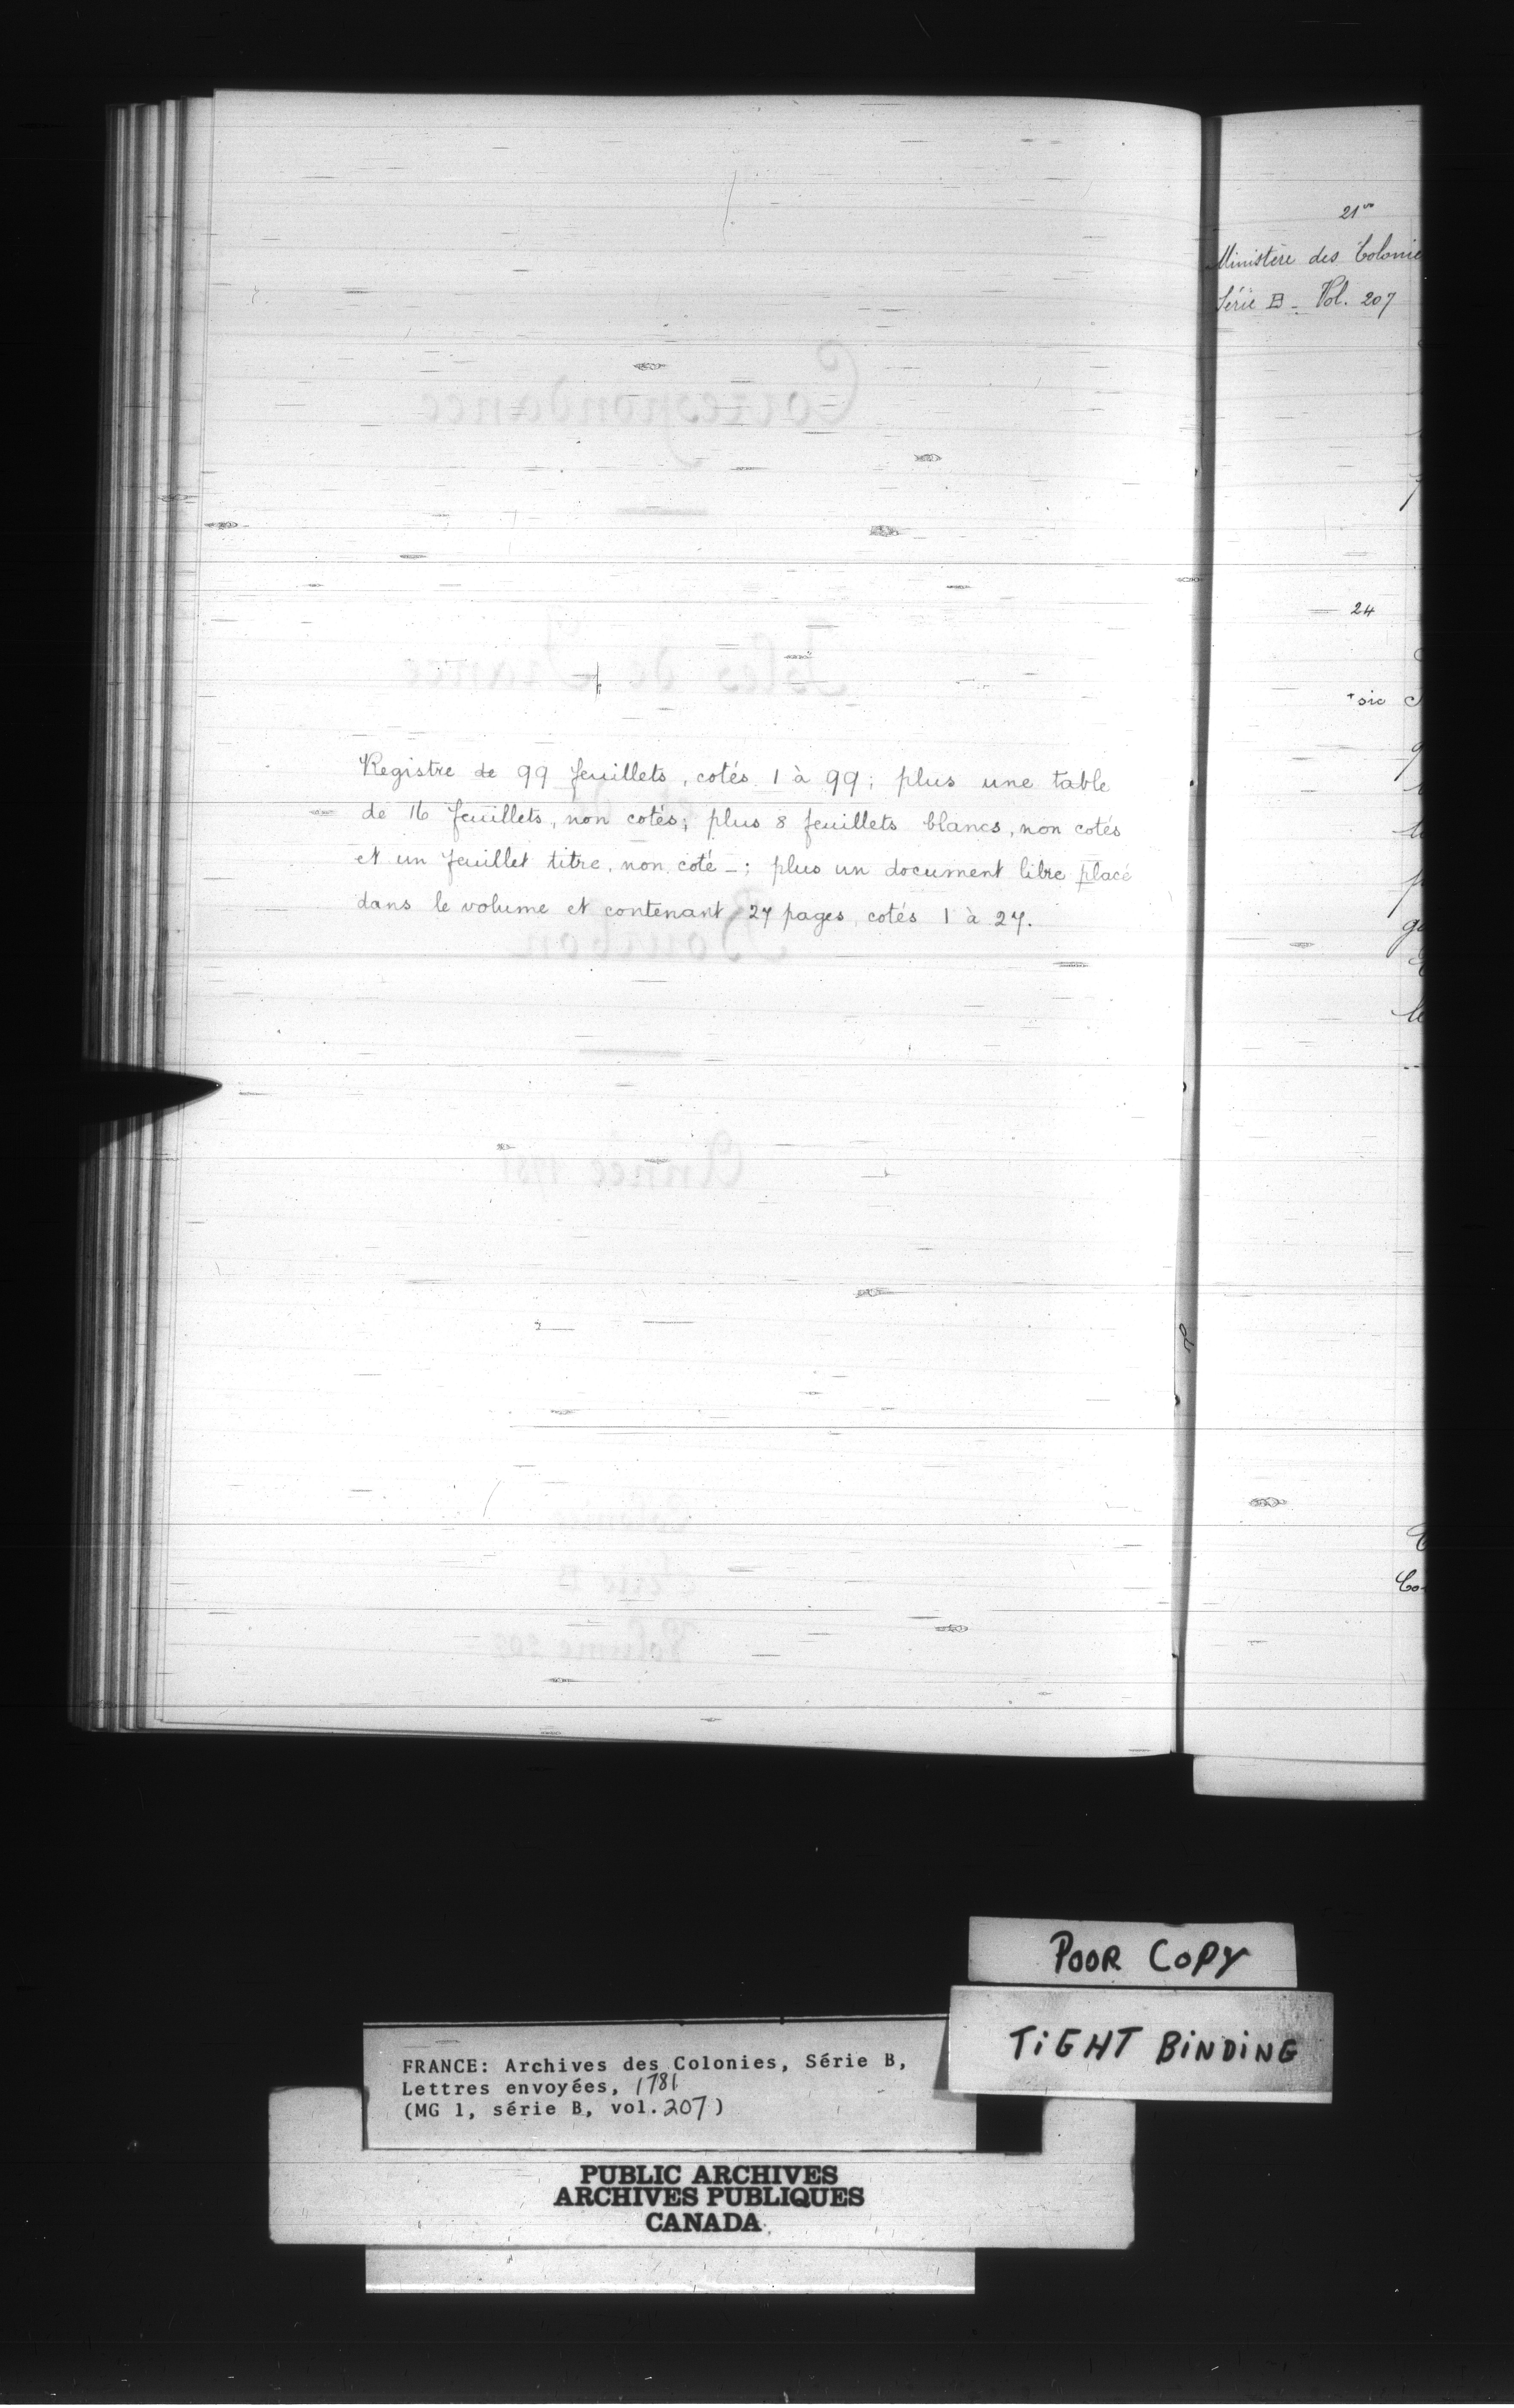 Registre de 99 feuillets, cotés 1 à 99; plus une table
de 16 feuillets, non cotés; plus 8 feuillets blancs, non cotés
et un feuillet titre, non coté -; plus un document libre placé
dans le volume et contenant 27 pages, cotés 1 à 27.
21vo
Ministère des Colonie
Série B - Vol. 207
24
+ sic
POOR COPY
TIGHT BINDING
FRANCE: Archives des Colonies, Série B,
Lettres envoyées, 1781
(MG 1, série B, vol. 207)
PUBLIC ARCHIVES
ARCHIVES PUBLIQUES
CANADA